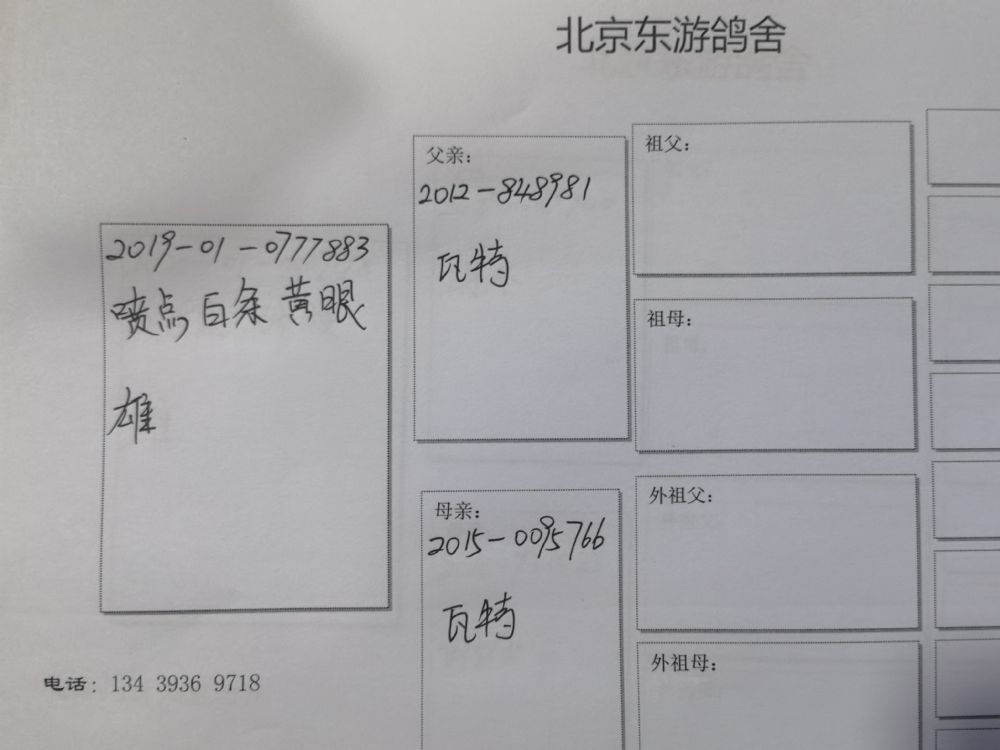 北京东游鸽舍
2019-01-0777883
喷点 白条 黄眼
雄
父亲：
2012-848981
瓦特
母亲：
2015-0095766
瓦特
祖父：
祖母：
外祖父：
外祖母：
电话：134 3936 9718